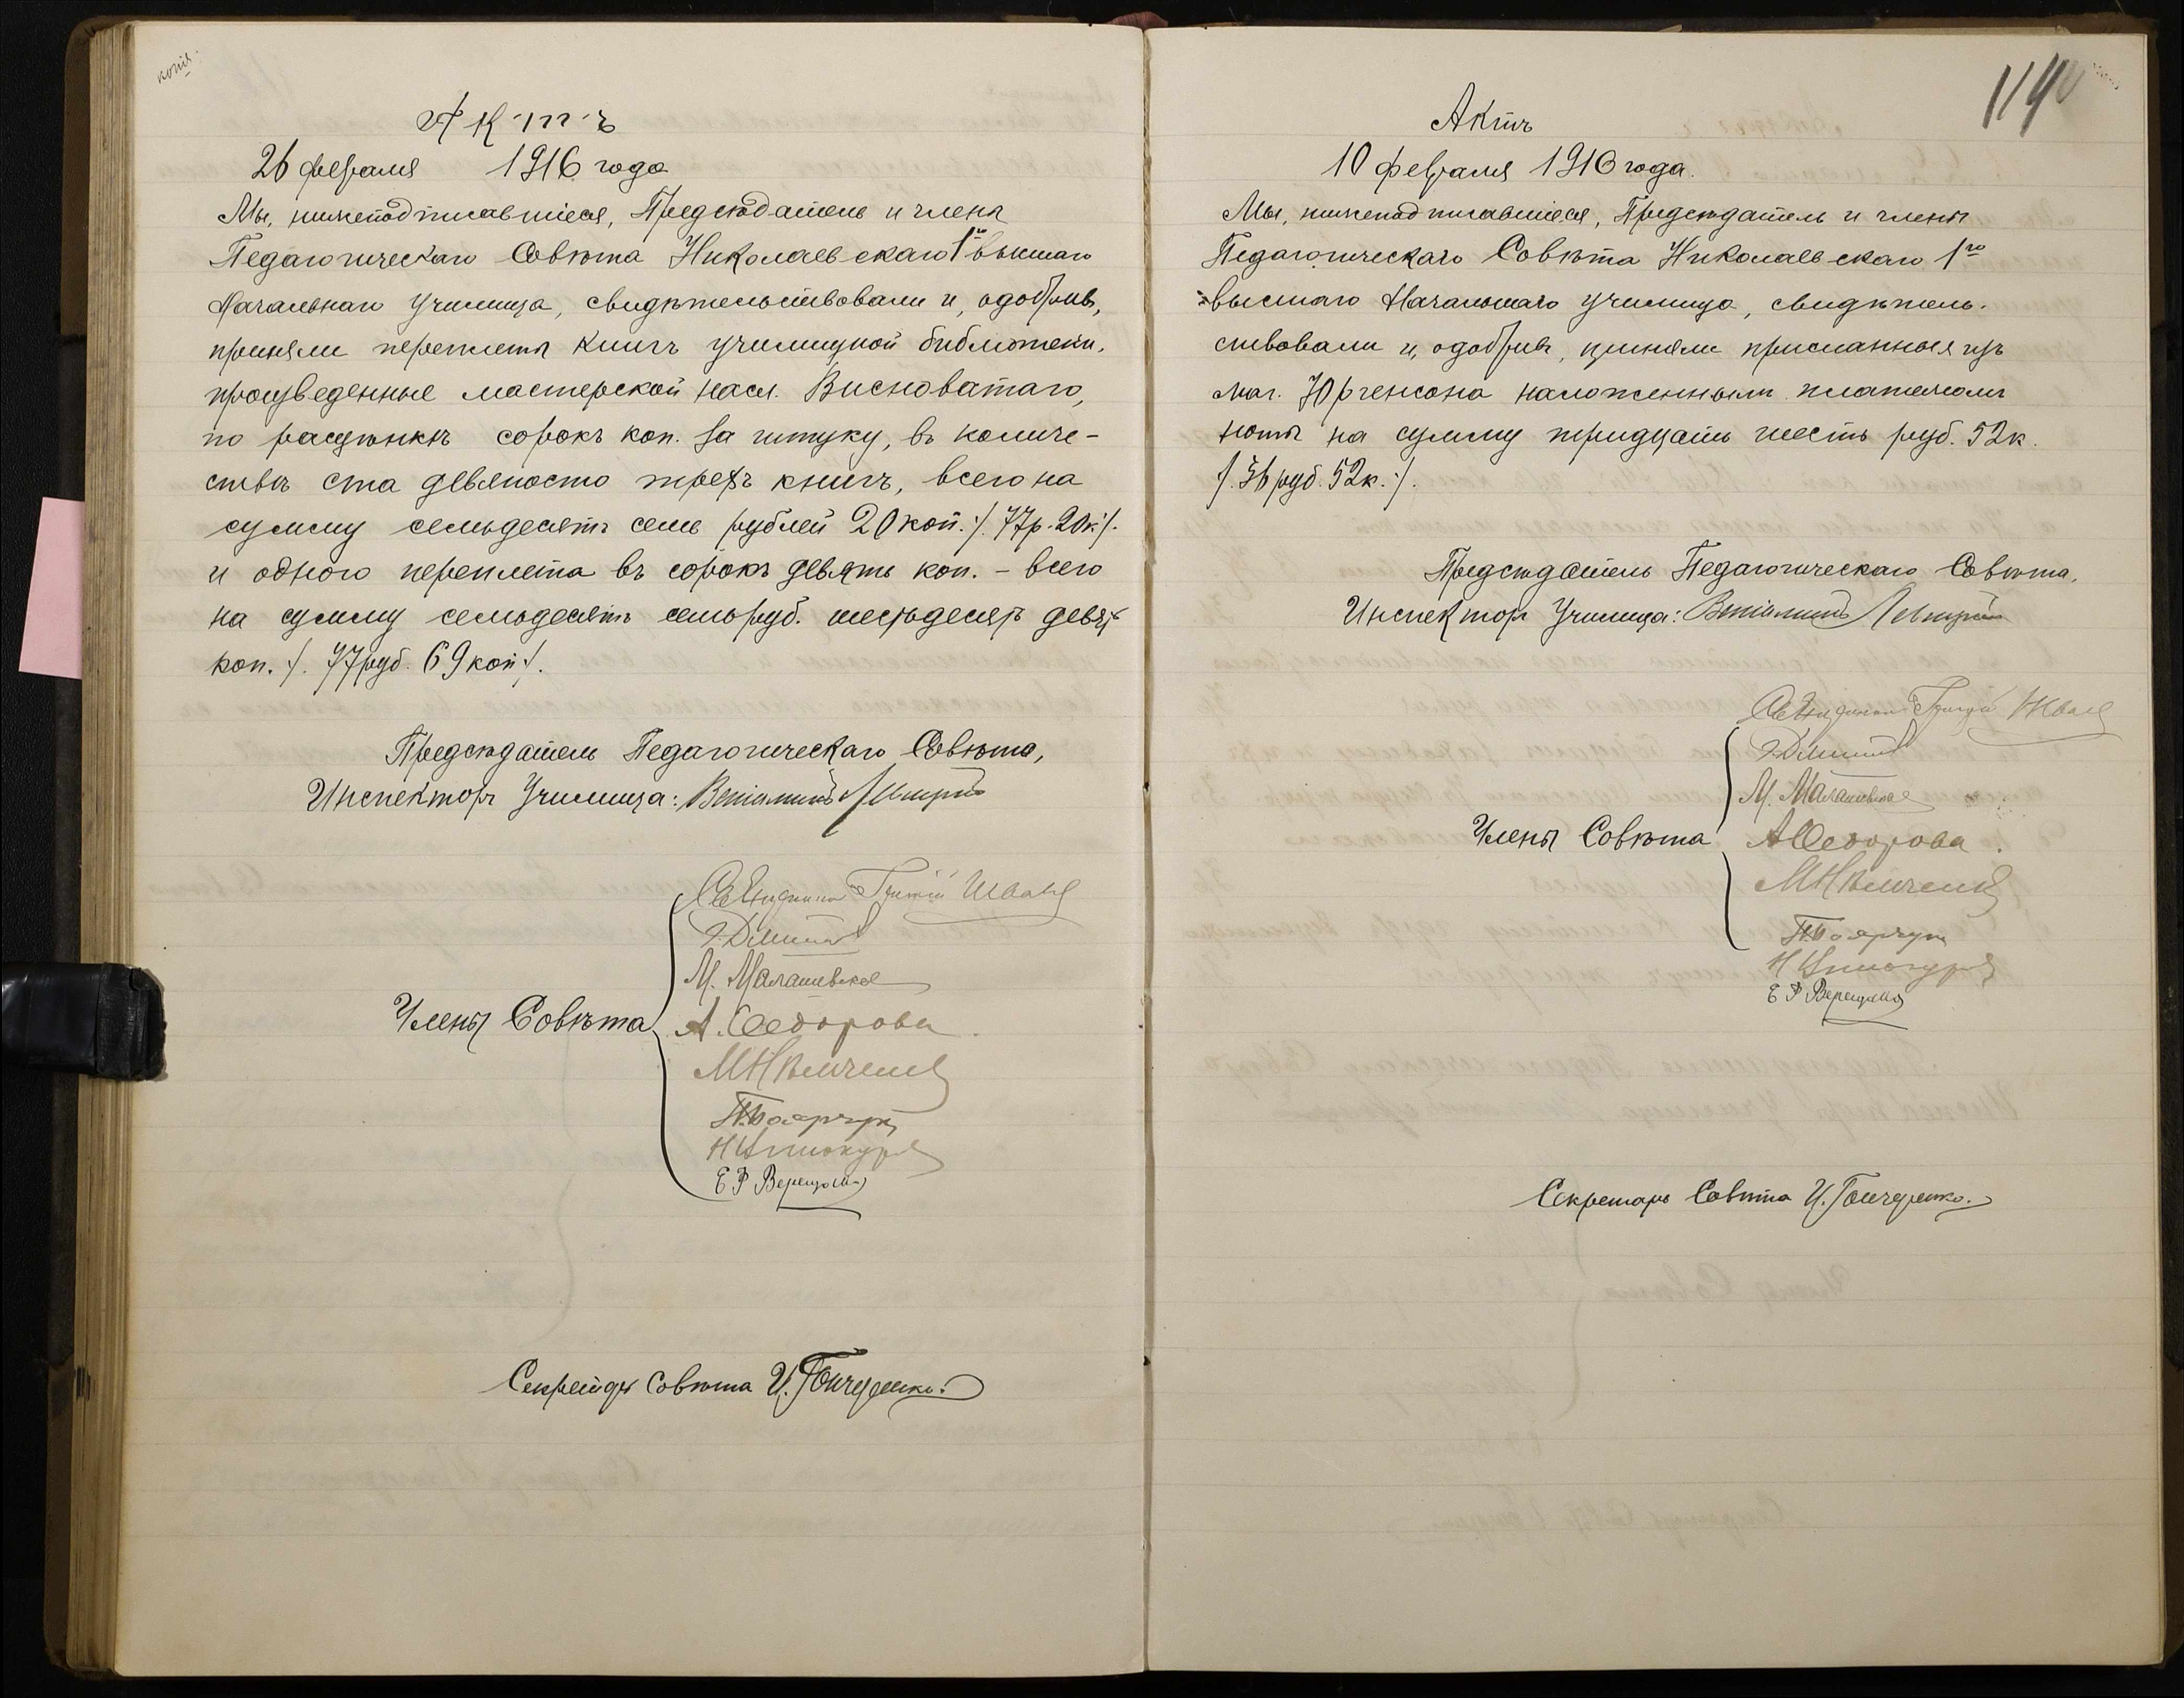 копія
Актъ
26 февраля 1916 года
Мы, нижеподписавшіеся, Предсѣдатель и члены
Педагогическаго Совѣта Николаевскаго 1го высшаго
Начальнаго Училища, свидѣтельствовали и, одобривъ,
приняли переплеты книгъ училищной библіотеки,
произведенные мастерской насл. Висковатаго,
по расцѣнкѣ сорокъ коп. за штуку, въ количе-
ствѣ ста девяносто трехъ книгъ, всего на
сумму семьдесятъ семь рублей 20 коп. ·/. 77р. 20к ·/.
и одного переплета въ сорокъ девять коп. – всего
на сумму семьдесятъ семь руб. шестьдесят девят
коп. ·/. 77 руб. 69 коп ·/.
Предсѣдатель Педагогическаго Совѣта,
Инспекторъ Училища: Веніаминъ
Члены Совѣта
М. Малашевская
А. Ѳедорова
Секретарь Совѣта И. Гончаренко.
114
Актъ
10 февраля 1916 года.
Мы, нижеподписавшіеся, Предсѣдатель и члены
Педагогическаго Совѣта Николаевскаго 1го
высшаго Начальнаго училища, свидѣтель-
ствовали и, одобривъ, приняли присланныя изъ
маг. Юргенсона наложеннымъ платежомъ
ноты на сумму тридцать шесть руб. 52к.
/. 36 руб. 52к. ·/.
Предсѣдатель Педагогическаго Совѣта,
Инспекторъ Училища: Веніаминъ
М. Малашевская
Члены Совѣта А Ѳедорова
Секретарь Совѣта И. Гончаренко.